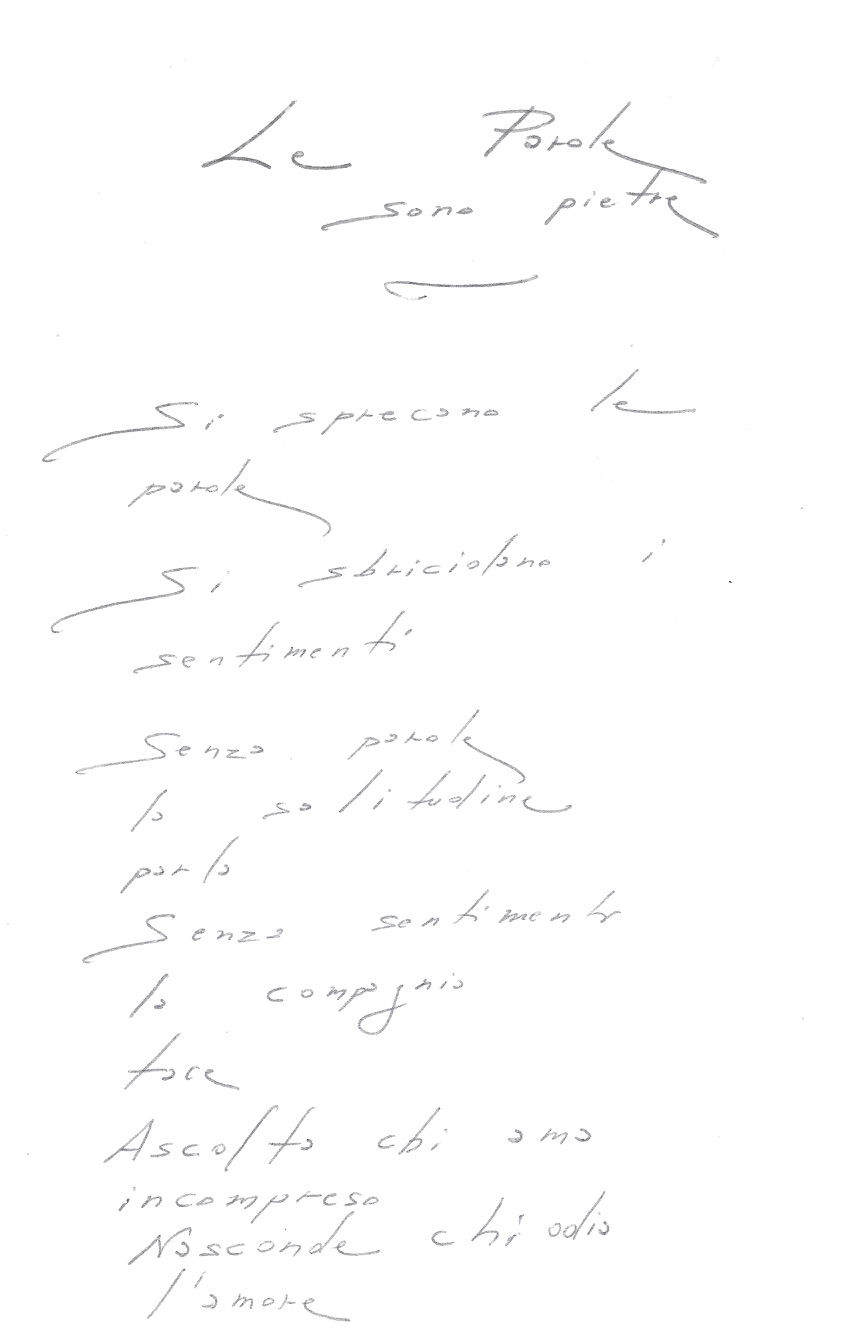 Le Parole
sono pietre
Si sprecano le
parole
Si sbriciolano i
sentimenti
Senza parole
la solitudine
parla
Senza sentimento
la compagnia
tace
Ascolta chi ama
incompreso
Nasconde chi odia
l'amore